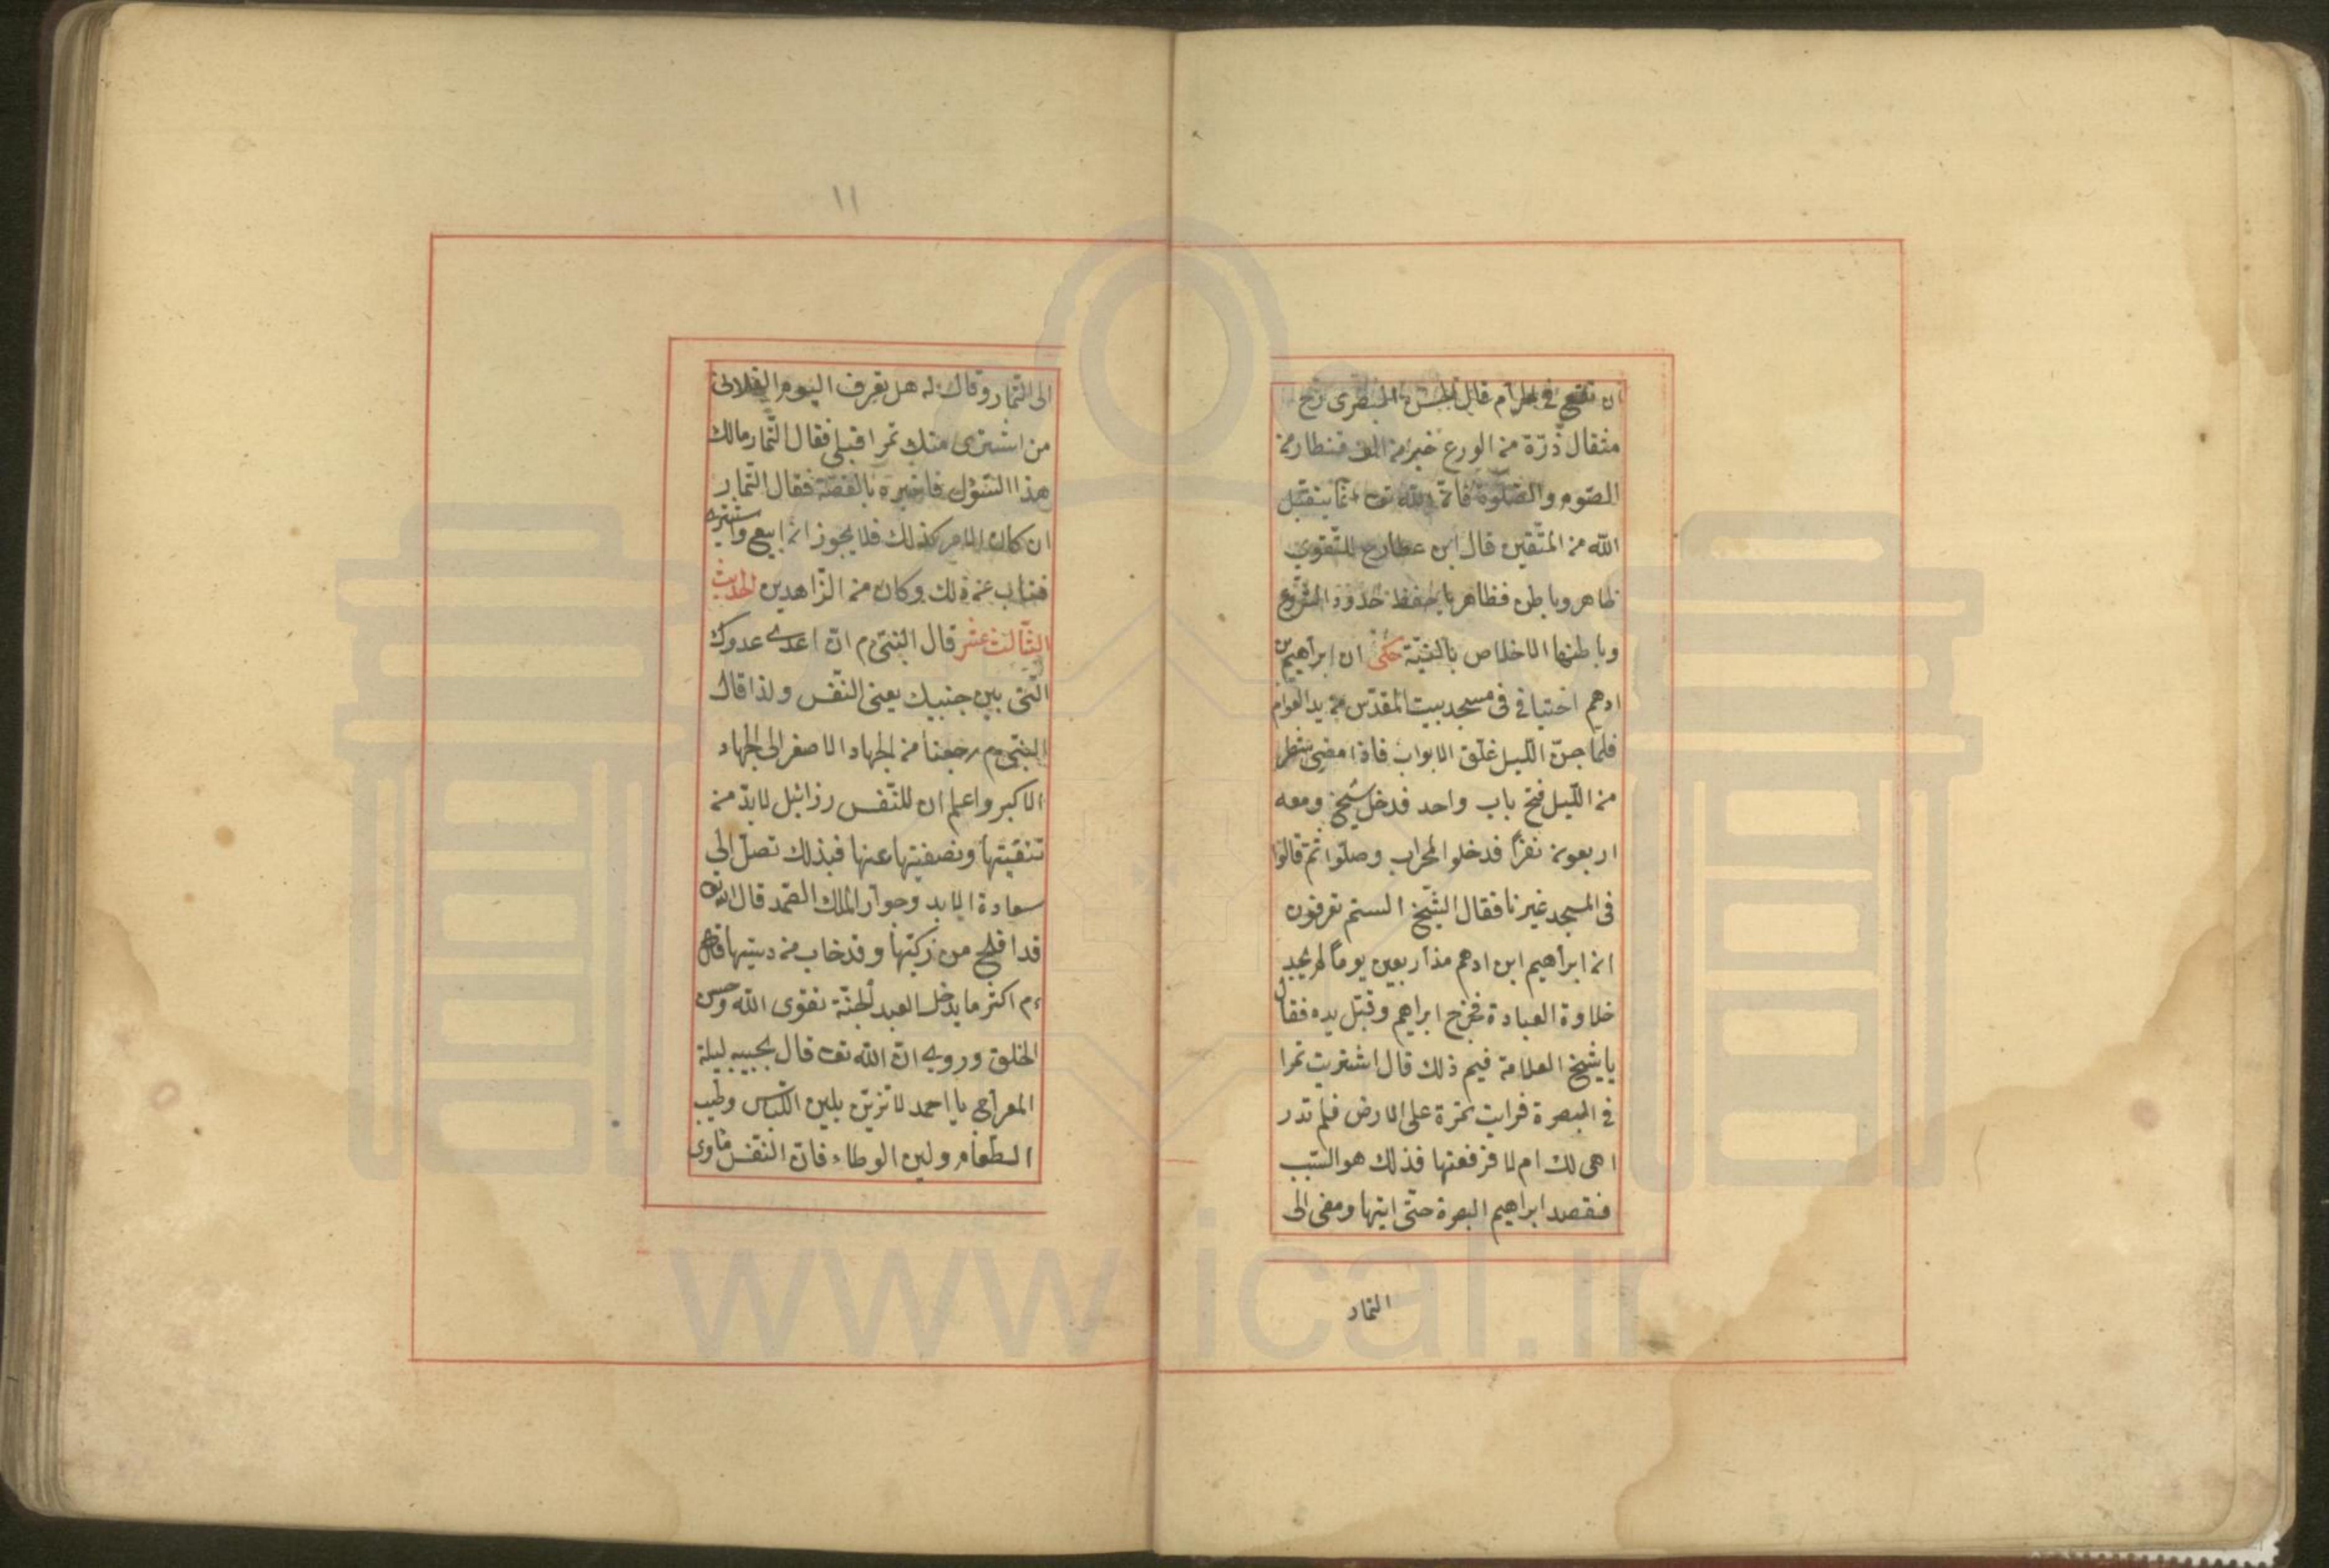 ان نقع في الحرام قال الحسن البصرى رح
مثقال ذرّة من الورع خير من الف قنطار من
الصّوم والصّلوة فانّ الله تعـ انّما يتقبّل
الله من المتّقين قال ابن عطا رح للتّقوى
ظاهر وباطن فظاهرها حفظ حدود الشّرع
وباطنها الاخلاص بالنيّة حكى ان ابراهيم بن
ادهم اختبا في مسجد بيت المقدّس العوام
فلمّا جنّ اللّيل غلق الابواب فاذا مضى شطر
من اللّيل فتح باب واحد فدخل شيخ ومعه
اربعون نفرًا فدخلوا المحراب وصلّوا ثمّ قالوا
فى المسجد غيرنا فقال الشّيخ الستم تعرفون
انه ابراهيم ابن ادهم مذ اربعين يوماً لم يجد
حلاوة العبادة فخرج ابراهيم وقبّل يده فقال
يا شيخ العلامة فيم ذلك قال اشتريت تمرا
في البصرة فرايت تمرة على الارض فلم تدر
اهى لك ام لا فرفعتها فذلك هو السّبب
فقصد ابراهيم البصرة حتّى ايتها ومضى الى
التمار
١١
الى التّمار وقال له هل تعرف اليوم الفلانى
من اشترى منك تمرا قبلى فقال التّمار مالك
هذا السّؤل فاخبره بالقصّة فقال التّمار
ان كان الامر كذلك فلا يجوز ان ابيع واشترى
فتاب عن ذلك وكان من الزّاهدين الحديث
الثّالث عشر قال النبّى م انّ اعدى عدوك
الّتى بين جنبيك يعنى النّفس ولذا قال
النبّى م رجعنا من الجهاد الاصغر الى الجهاد
الاكبر واعلم ان للنّفس رزائيل لابدّ من
تنقيتها وتصفيتها عنها فبذلك تصل الى
سعادة الابد وجوار الملك الصّمد قال الله تعـ
قد افلح من زكيّها وقد خاب من دسيّها قال
ءم اكثر ما يدخل العبد الجنّة تقوى الله وحسن
الخلق وروى انّ الله تعـ قال لحبيبه ليلة
المعراج يا احمد لا تزيّن بلين اللّباس وطيب
الطّعام ولين الوطاء فانّ النّفس ماوى
www.ical.ir